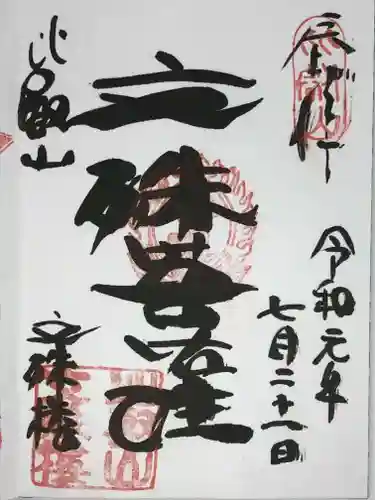 令和元年
七月二十八日
文殊菩薩
比叡山
文殊楼